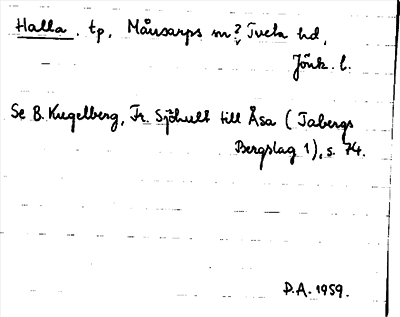 Halla. tp, Månsarps sn? Tveta hd,
Jönk. l.
Se B. Kugelberg, Fr. Sjöhult till Åsa (Tabergs
Bergslag 1), s. 74.
D.A. 1959.